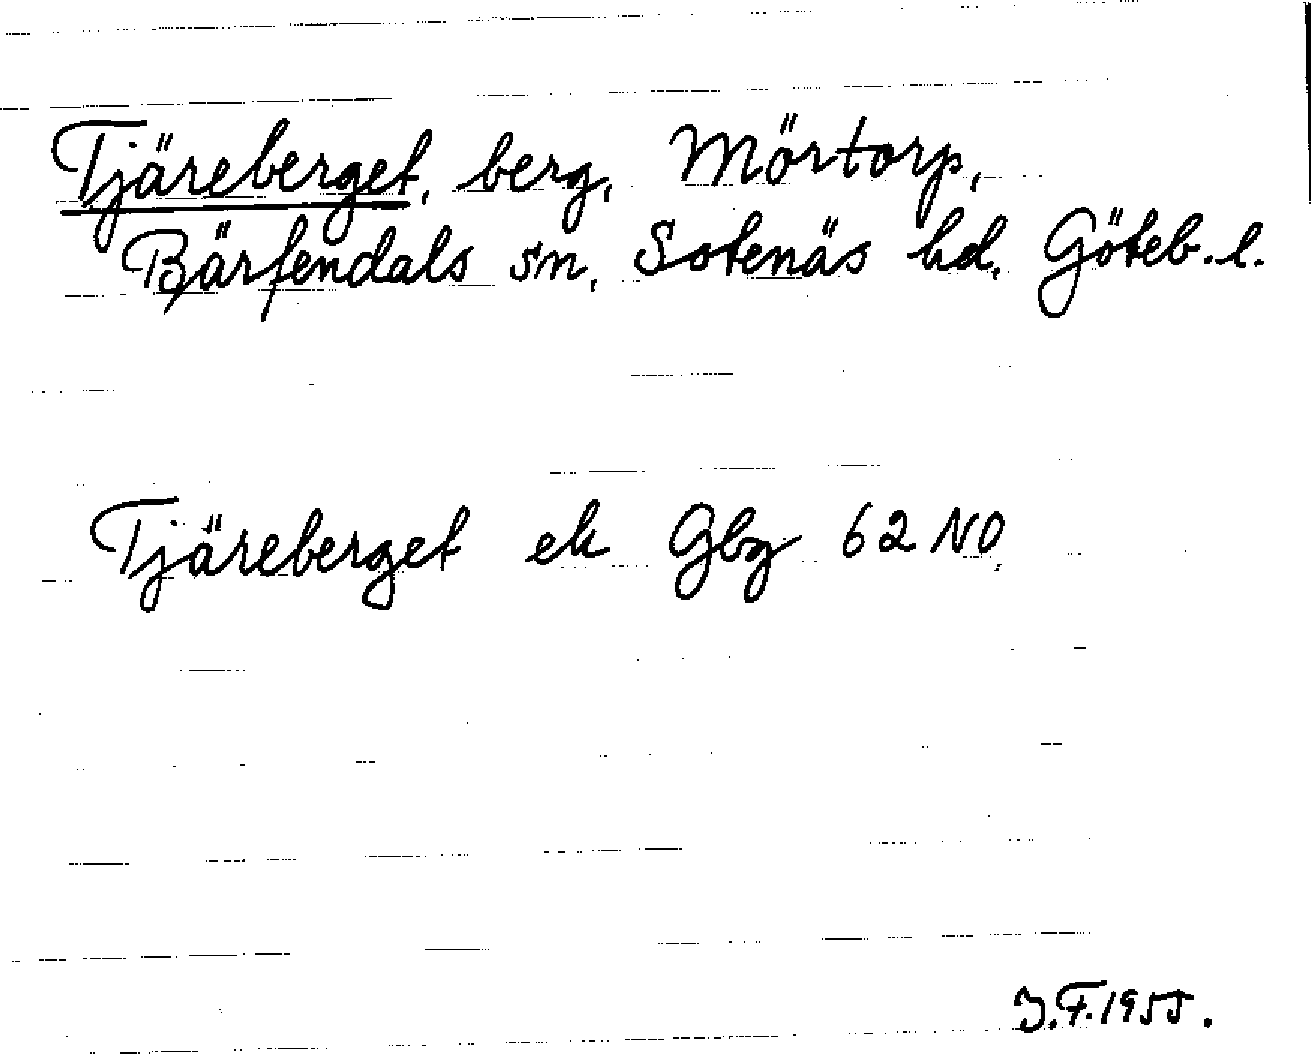 Tjäreberget, berg, Mörtorp,
Bärfendals sn, Sotenäs hd, Göteb. l.
Tjäreberget ek Gbg 62 NO
J.F. 1955.